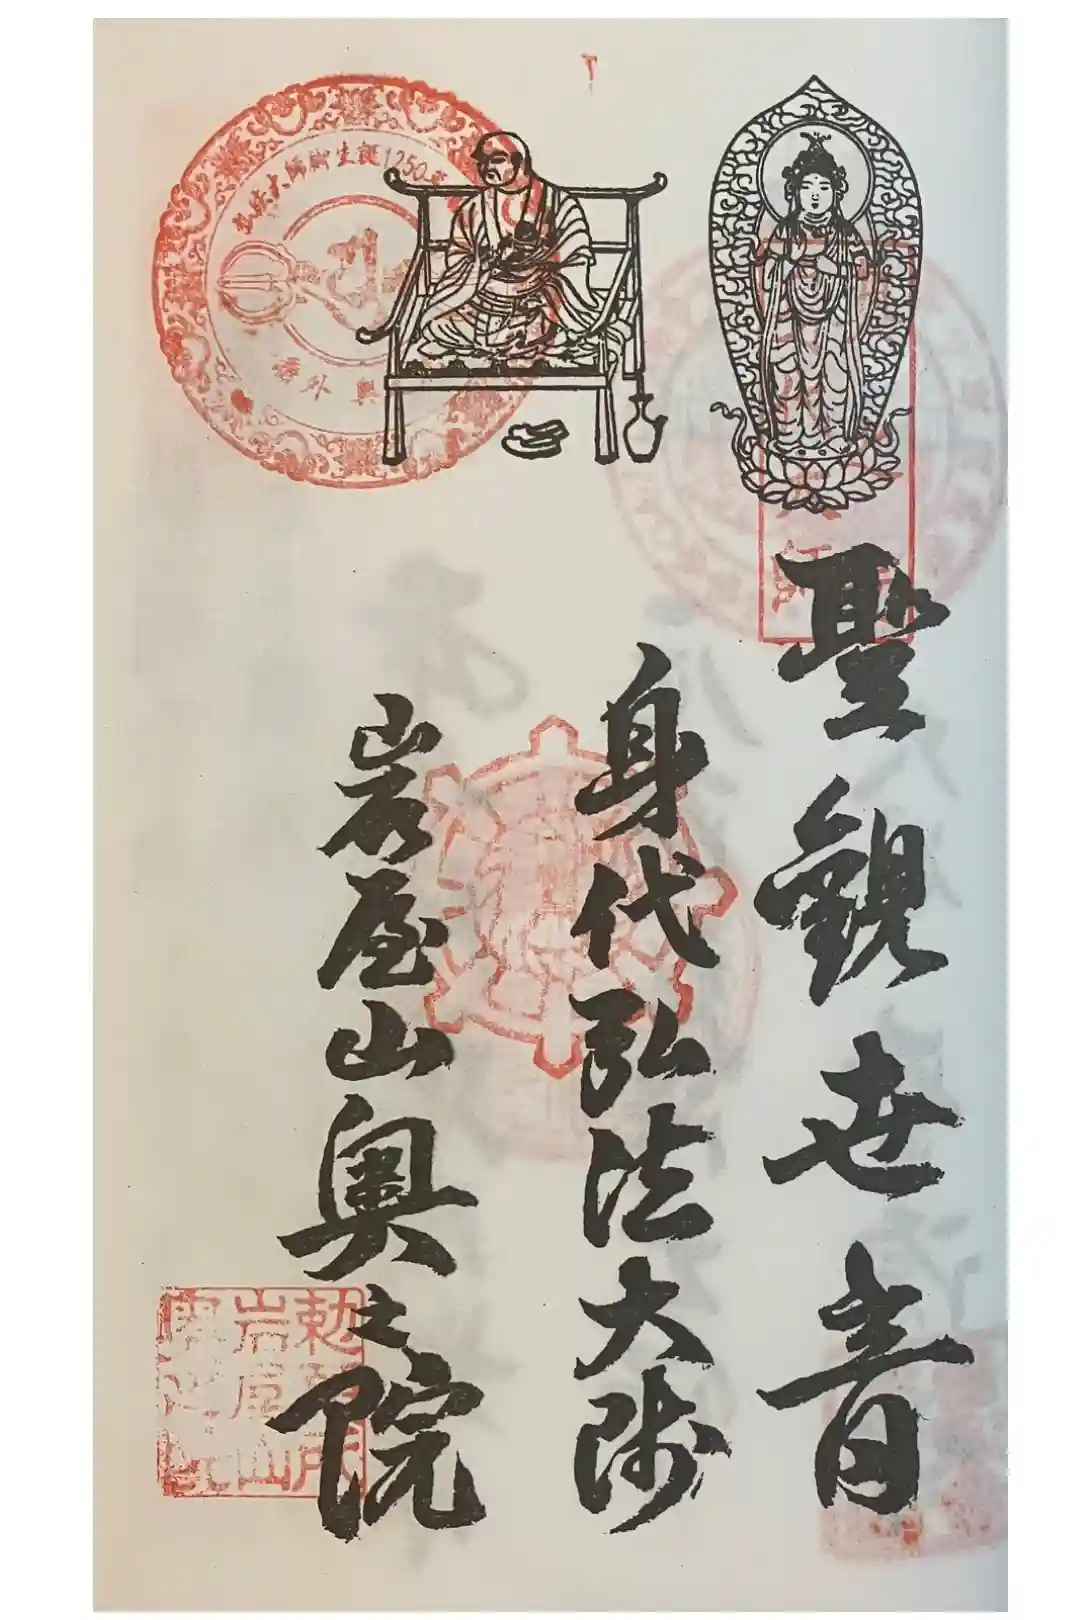 聖観世音
身代弘法大師
岩屋山奥之院
弘法大師御生誕1250年
番外 奥